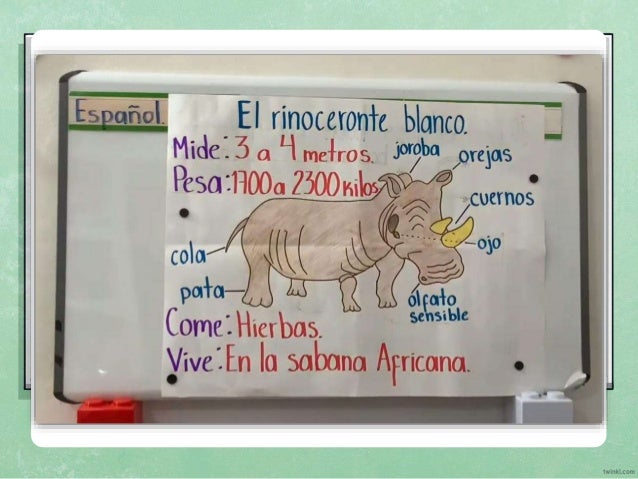 Español.
El rinoceronte blanco.
Mide: 3 a 4 metros.
Pesa: 1700 a 2300 kilos
joroba
orejas
cuernos
ojo
cola
pata
olfato
sensible
Come: Hierbas.
Vive: En la sabana Africana.
twinkl.com